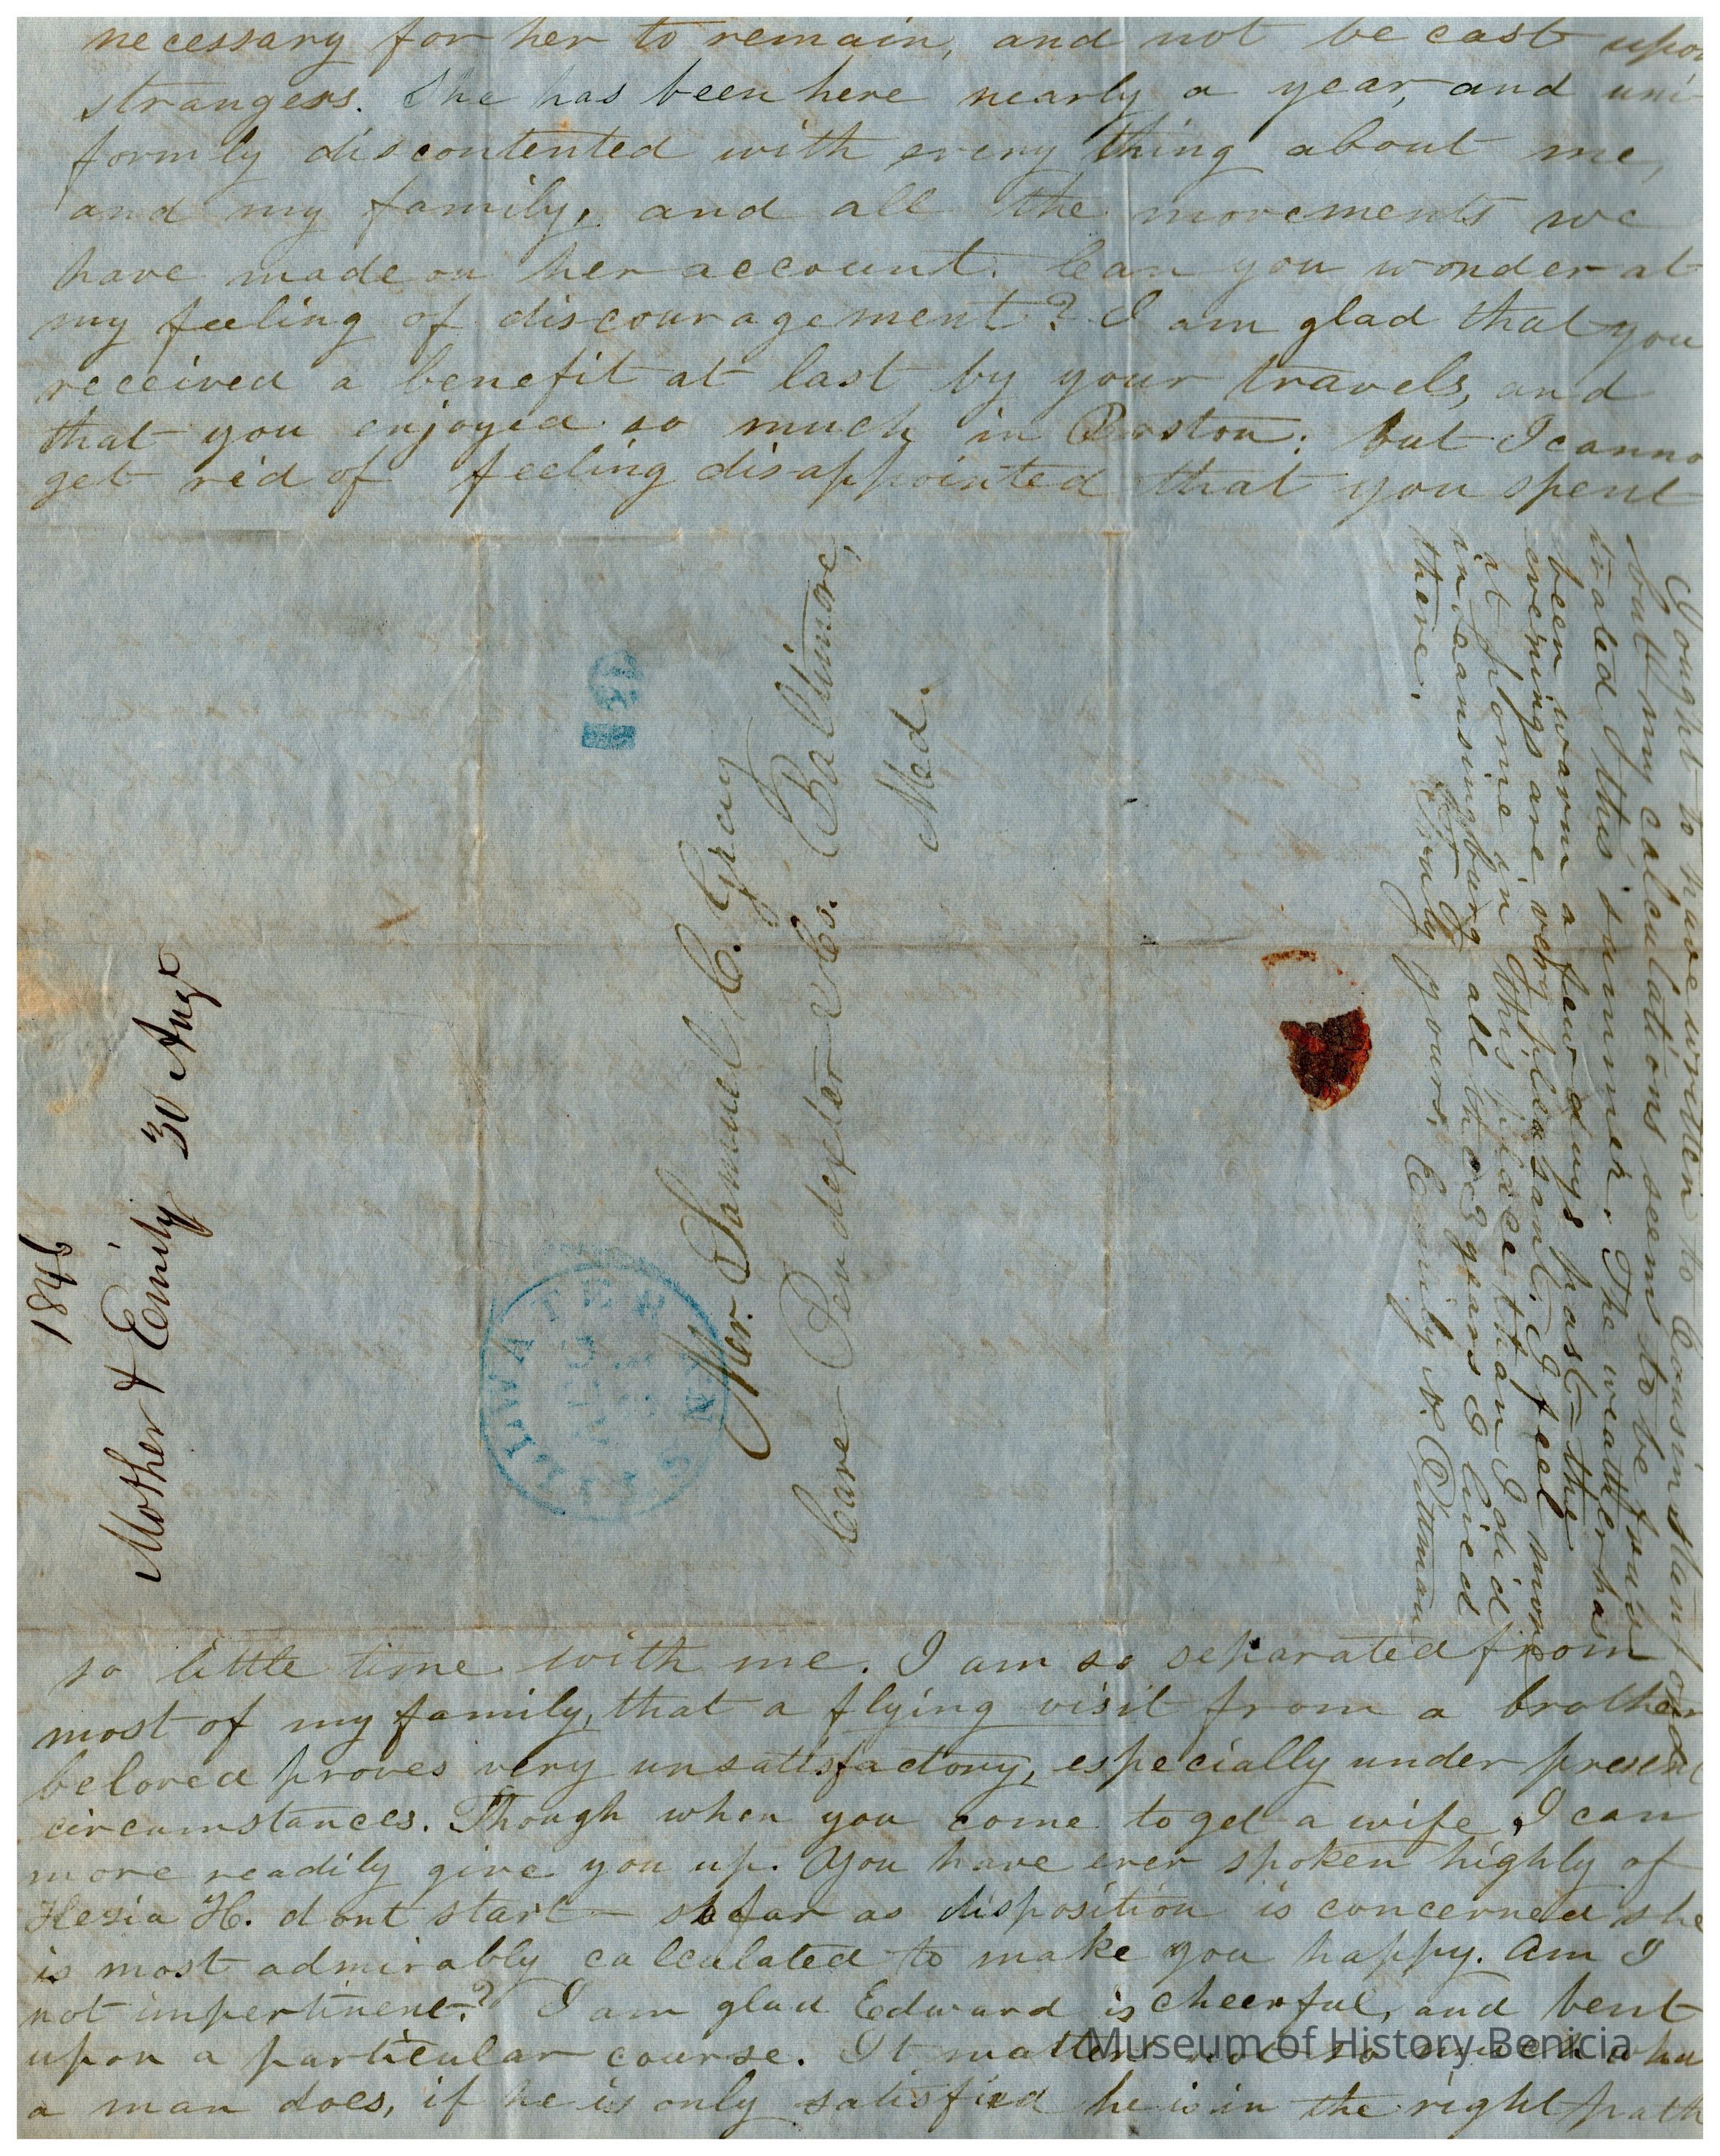 necessary for her to remain, and not be cast upon
strangers. She has been here nearly a year, and uni-
formly discontented with every thing about me,
and my family, and all the movements we
have made on her account. Can you wonder at
my feeling of discouragement? I am glad that you
received a benefit at last by your travels, and
that you enjoyed so much in Boston: but I canno
get rid of feeling disappointed that you spent
so little time with me. I am so separated from
most of my family, that a flying visit from a brother
beloved proves very unsatisfactory, especially under present
circumstances. Though when you come to get a wife, I can
more readily give you up. You have ever spoken highly of
H. dont start - so far as disposition is concerned she
is most admirably calculated to make you happy. Am I
not impertinent? I am glad Edward is cheerful, and bent
upon a particular course. It matters not so much wha
a man does, if he is only satisfied he is in the right path
I ought to have written to Cousin Stanford
but my calculations seem to be frus
trated this summer. The weather has
been warm a few days past - the
evenings are very pleasant. I feel more
at home in this place than I did
in Lansingburg all the years I lived
there. Very Truly yours. Emily N. Pittman
Mr. Samuel C. Gray
Care Pendexter & Co. Baltimore,
Md.
STILLWATER
AUG
N.Y.
Mother & Emily 30 Aug
1846
Museum of History Benicia